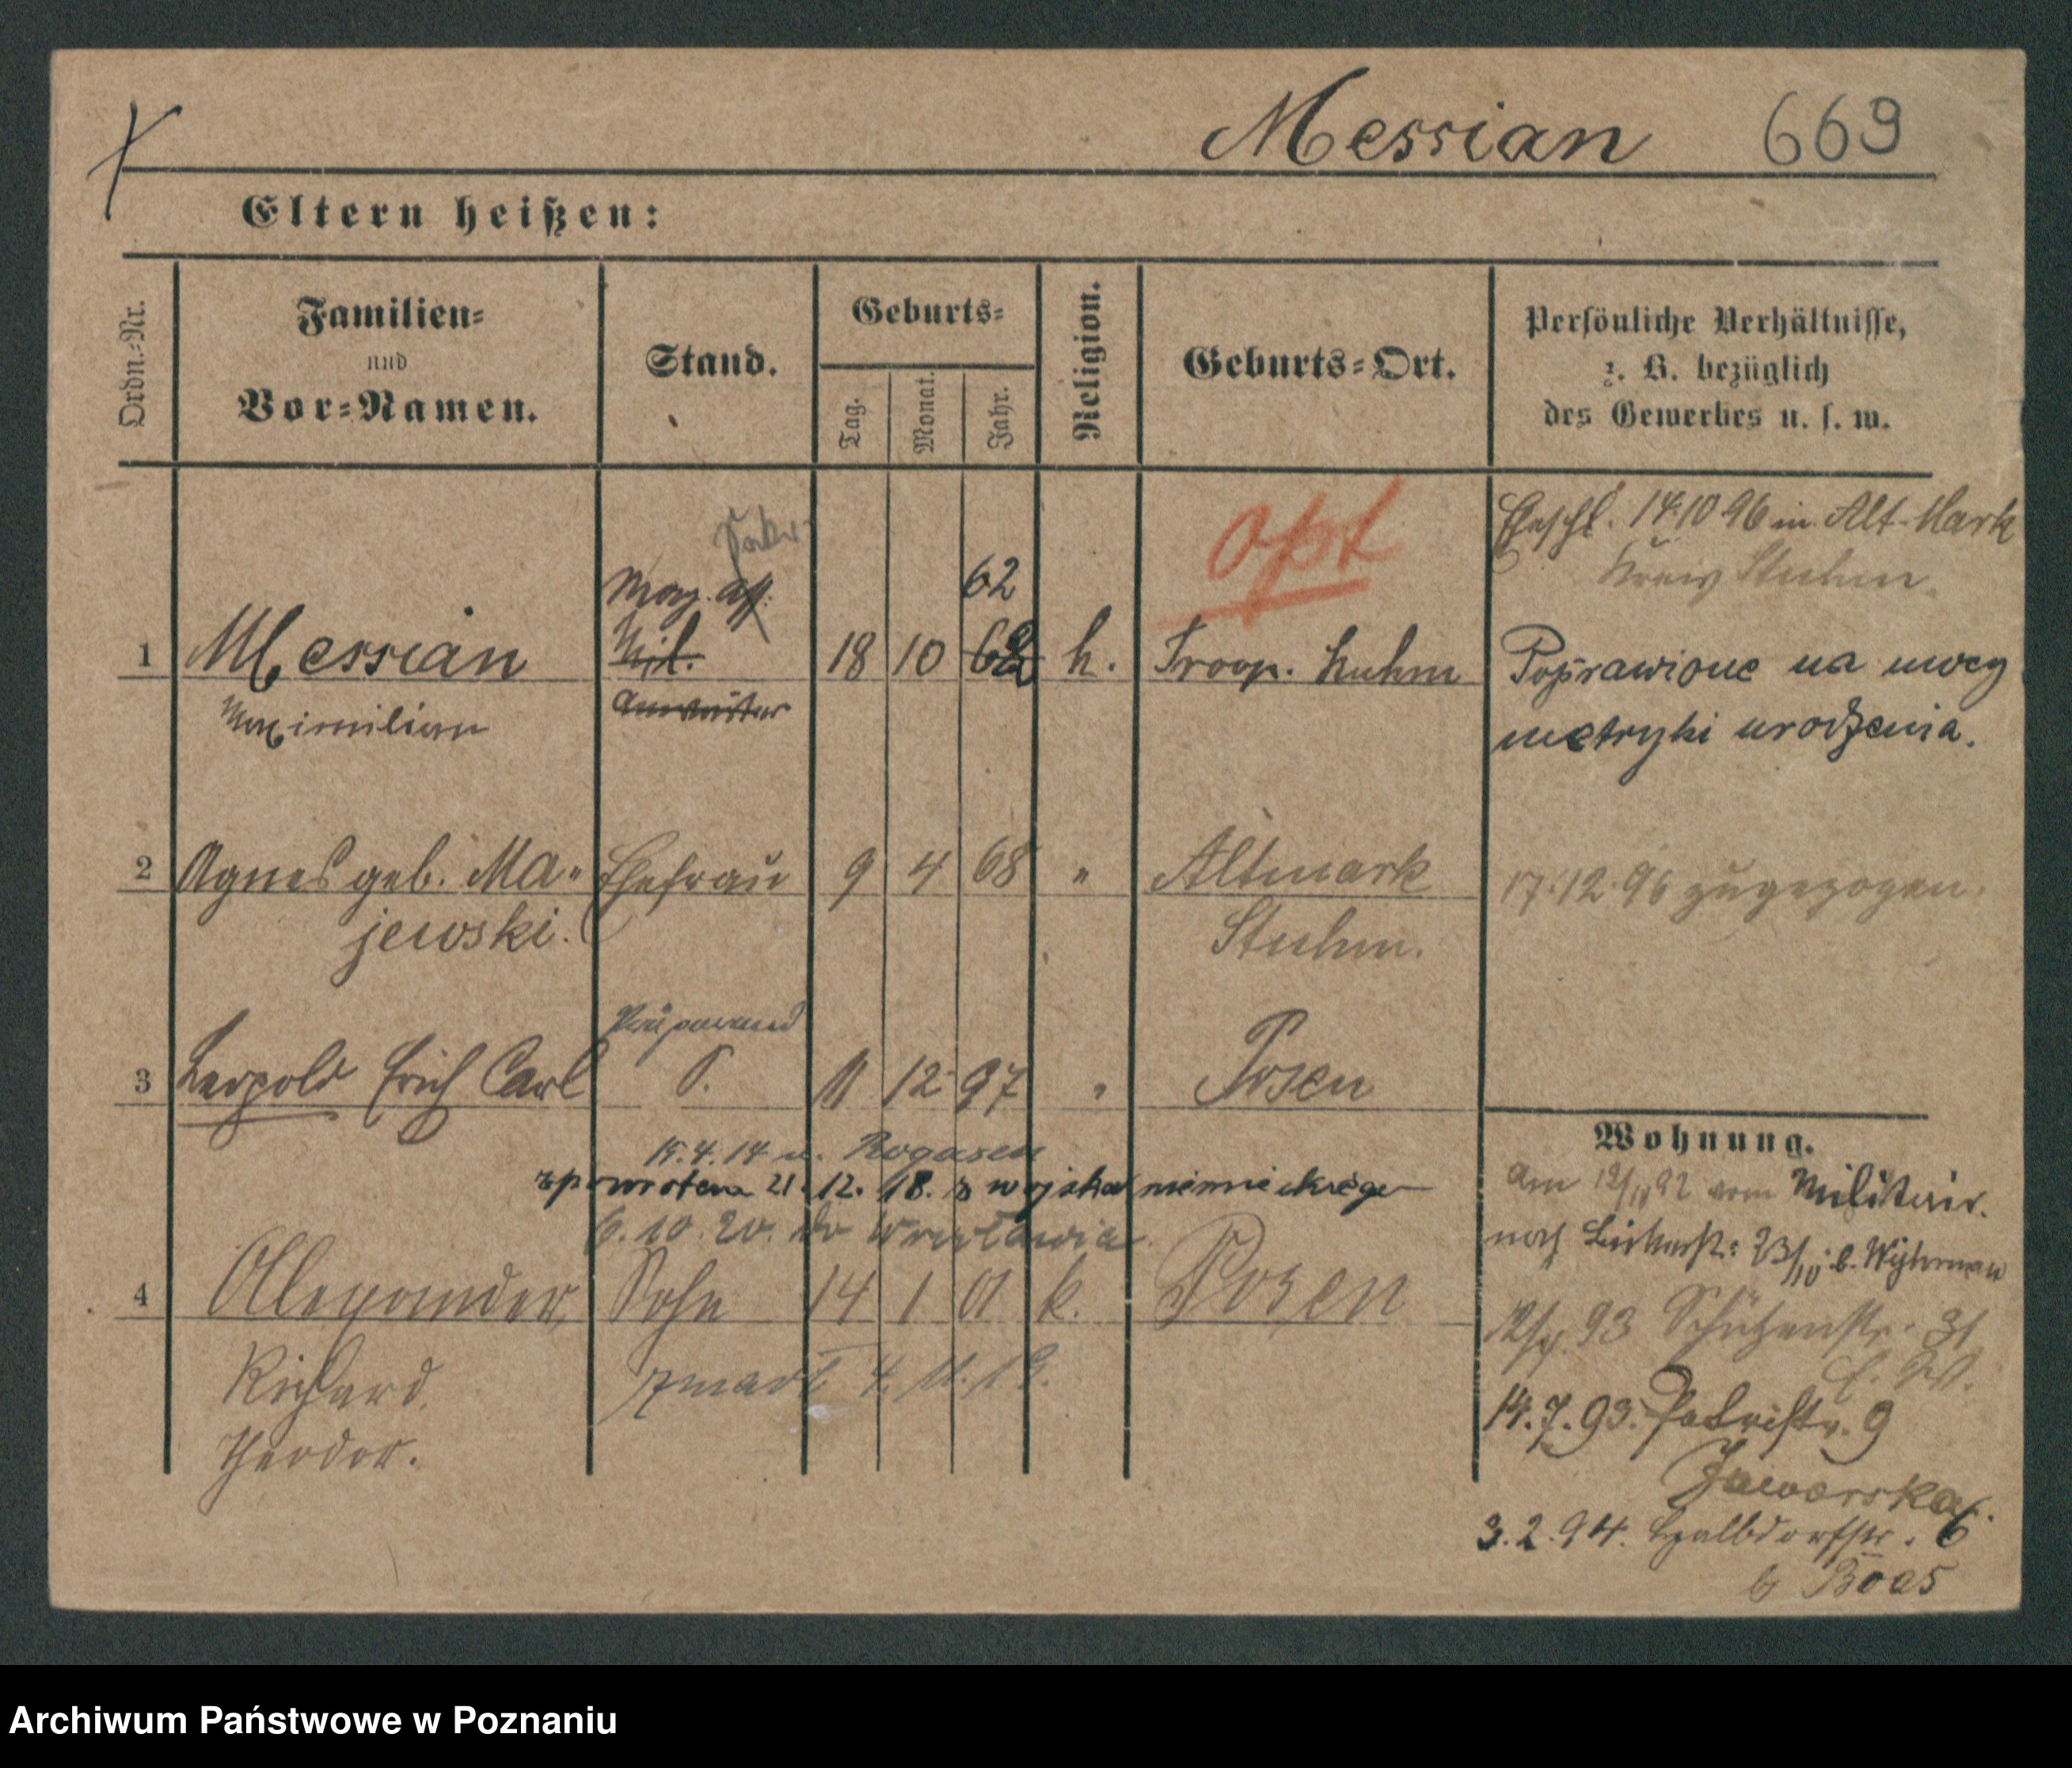 Messian 669
Eltern heißen:
Ordn.-Nr.
Familien-
und
Vor-Namen.
Stand.
Geburts-
Tag.
Monat.
Jahr.
Religion.
Geburts-Ort.
Persönliche Verhältnisse,
z. B. bezüglich
des Gewerbes u. s. w.
opt
Eheschl. 14.10 96 in Alt-Mark
Kreis Stuhm.
Mag.
62
1 Messian Mil. 18 10 k. Troop. Stuhm
Maximilian Anwärter
Poprawione na mocy
metryki urodzenia.
2 Agnes geb. Ma- Ehefrau 9 4 68 " Altmark
jewski. Stuhm.
17.12.96 zugezogen.
Präparand
3 Leopold Erich Carl S. 11 12 97 " Posen
15.4.14 n. Rogasen
z powrotem 21.12.18. z wojska niemieckiego
6.10.20. do Wrocławia
4 Alexander Sohn 14 1 01 k. Posen
Richard zmarł 4.11.19.
Theodor.
Wohnung.
Am 12/11 92 vom Militair.
nach
93 Schützenstr. 31
14.7.93. Petristr. 9
Jaworska
3.2.94. Halbdorfstr. 6
b Boas
Archiwum Państwowe w Poznaniu